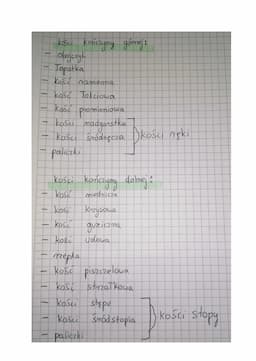 kości kończyny górnej:
- obojczyk
- Łopatka
- kość ramienna
- kość Łokciowa
- kość promieniowa
- kości nadgarstka
- kości śródręcza
kości ręki
- paliczki
kości kończyny dolnej:
- kość miednicza
- kość krzyżowa
- kość guziczna
- kość udowa
- rzepka
- kość piszczelowa
- kość strzałkowa
- kości stępu
- kości śródstopia
kości stopy
- paliczki